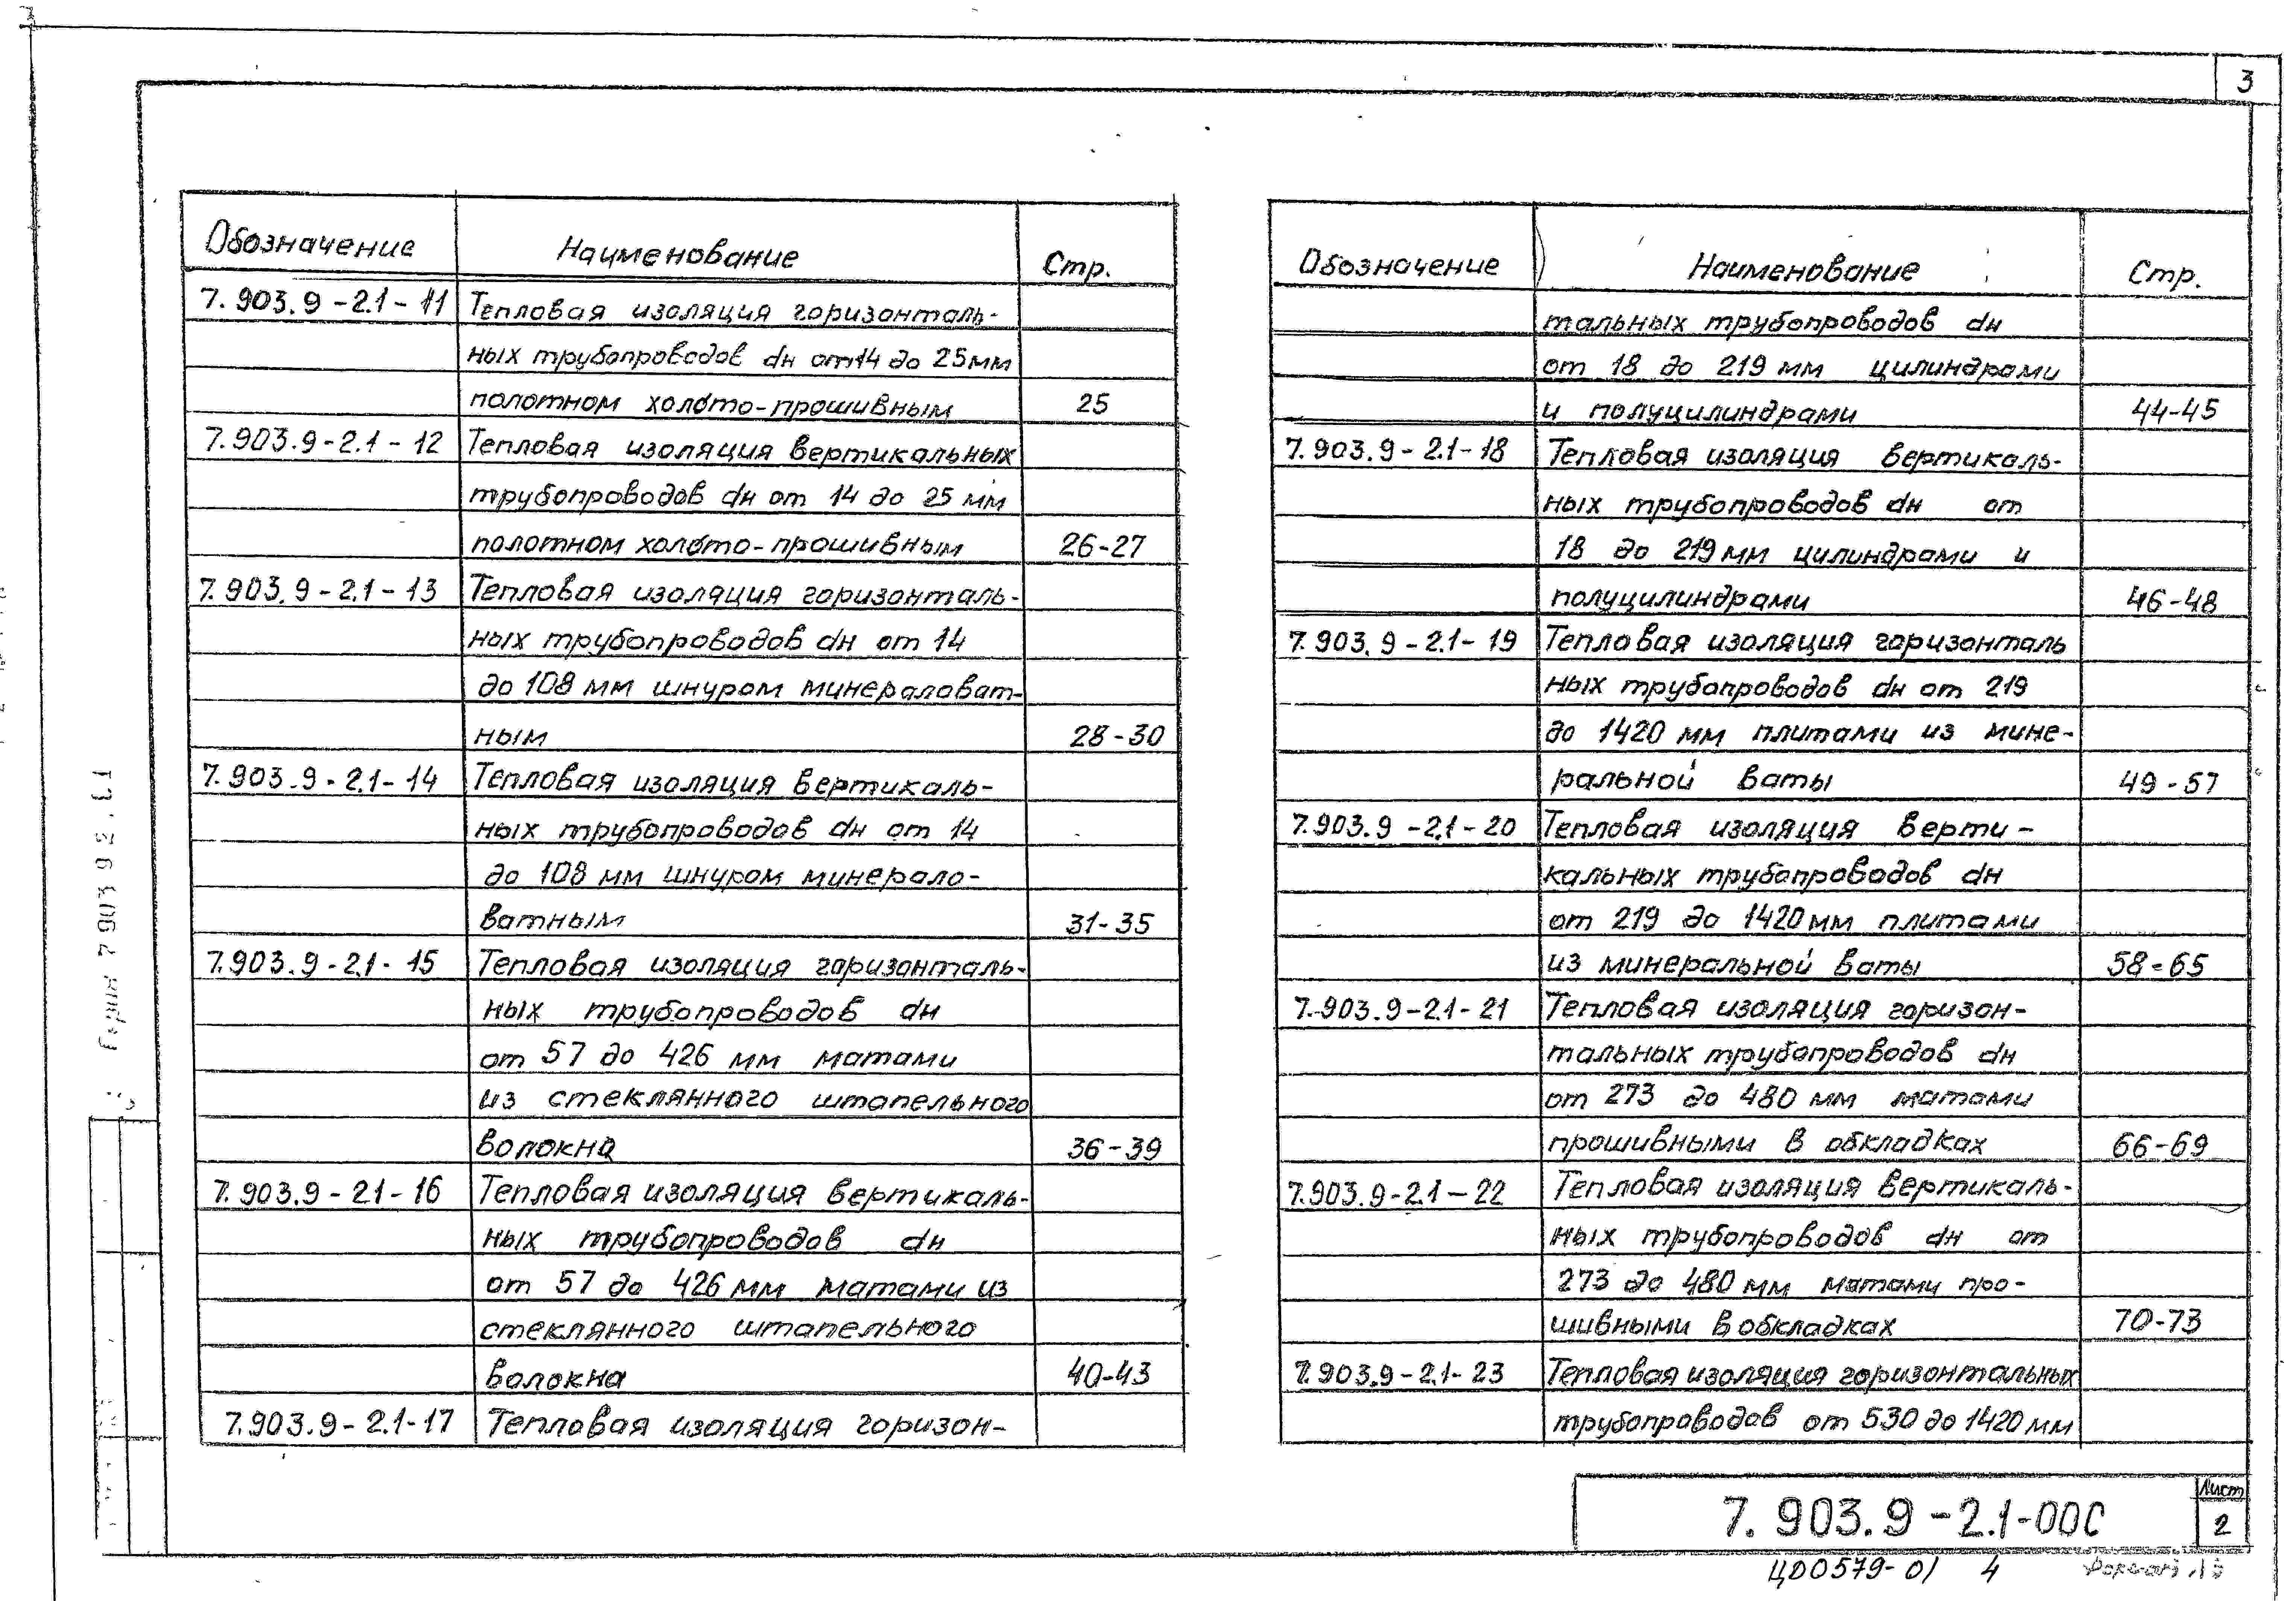 3
Обозначение Наименование Стр.
7.903.9-2.1-11 Тепловая изоляция горизонталь-
ных трубопроводов dн от 14 до 25 мм
полотном холсто-прошивным 25
7.903.9-2.1-12 Тепловая изоляция вертикальных
трубопроводов dн от 14 до 25 мм
полотном холсто-прошивным 26-27
7.903.9-2.1-13 Тепловая изоляция горизонталь-
ных трубопроводов dн от 14
до 108 мм шнуром минераловат-
ным 28-30
7.903.9-2.1-14 Тепловая изоляция вертикаль-
ных трубопроводов dн от 14
до 108 мм шнуром минерало-
ватным 31-35
7.903.9-2.1-15 Тепловая изоляция горизонталь-
ных трубопроводов dн
от 57 до 426 мм матами
из стеклянного штапельного
волокна 36-39
7.903.9-2.1-16 Тепловая изоляция вертикаль-
ных трубопроводов dн
от 57 до 426 мм матами из
стеклянного штапельного
волокна 40-43
7.903.9-2.1-17 Тепловая изоляция горизон-
Обозначение Наименование Стр.
тальных трубопроводов dн
от 18 до 219 мм цилиндрами
и полуцилиндрами 44-45
7.903.9-2.1-18 Тепловая изоляция вертикаль-
ных трубопроводов dн от
18 до 219 мм цилиндрами и
полуцилиндрами 46-48
7.903.9-2.1-19 Тепловая изоляция горизонталь
ных трубопроводов dн от 219
до 1420 мм плитами из мине-
ральной ваты 49-57
7.903.9-2.1-20 Тепловая изоляция верти-
кальных трубопроводов dн
от 219 до 1420 мм плитами
из минеральной ваты 58-65
7.903.9-2.1-21 Тепловая изоляция горизон-
тальных трубопроводов dн
от 273 до 480 мм матами
прошивными в обкладках 66-69
7.903.9-2.1-22 Тепловая изоляция вертикаль-
ных трубопроводов dн от
273 до 480 мм матами про-
шивными в обкладках 70-73
7.903.9-2.1-23 Тепловая изоляция горизонтальных
трубопроводов от 530 до 1420 мм
7.903.9-2.1-00С
Лист
2
ЦД0579-01 4